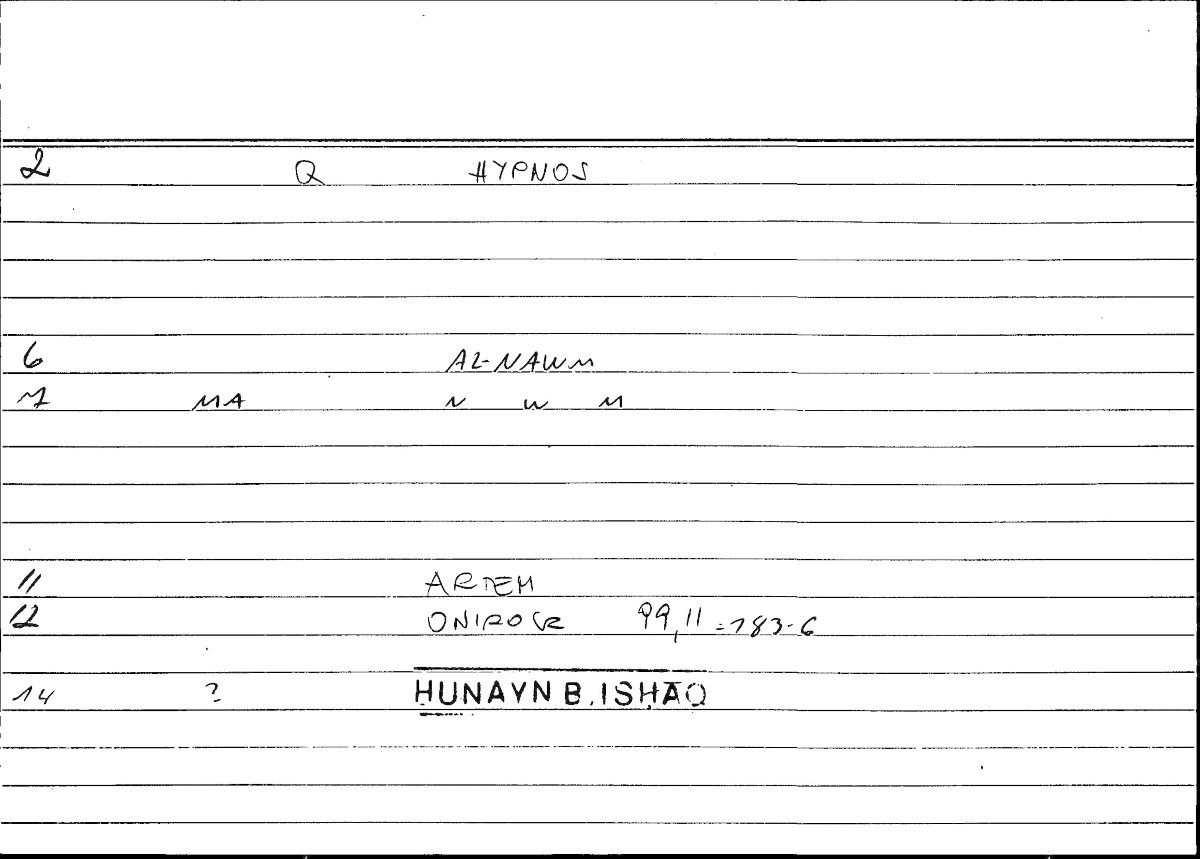 2 Q HYPNOS
6 AL-NAWM
7 MA N W M
11 ARTEM
12 ONIROCR 99,11=183-6
14 ? ḤUNAYN B. ISḤĀQ